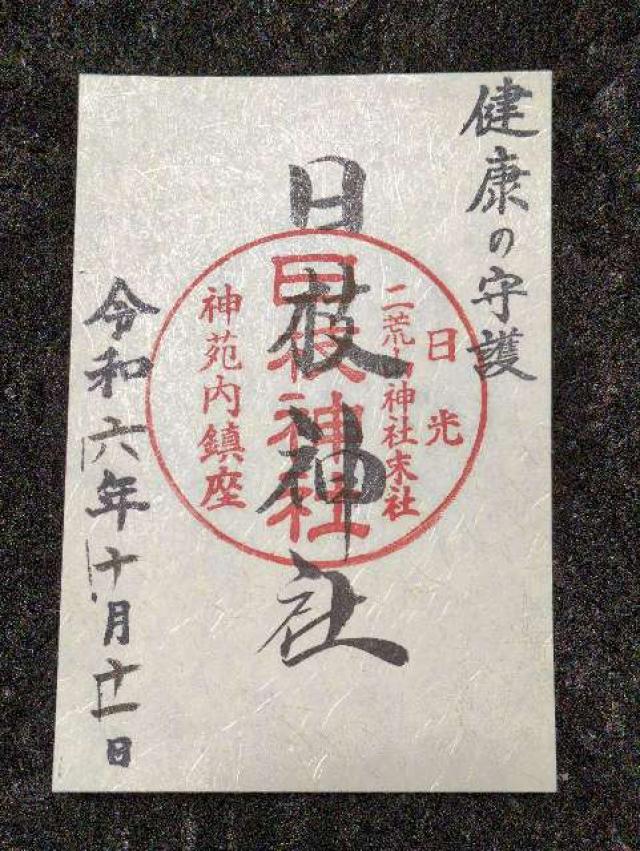 健康の守護
日枝神社
日光
二荒山神社末社
日枝神社
神苑内鎮座
令和六年十月十一日